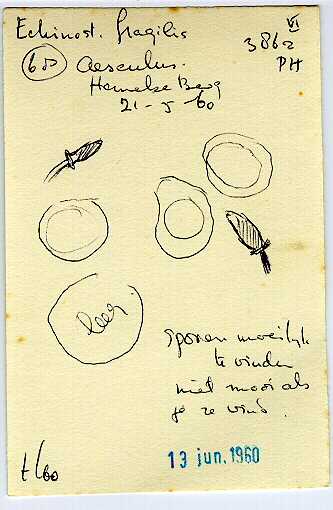 Echinost. fragilis
VI
3862
PH
600 Aesculus.
Hemelse Berg
21-5-60
leeg.
Sporen moeilijk
te vinden
niet mooi als
je ze vind.
13 jun. 1960